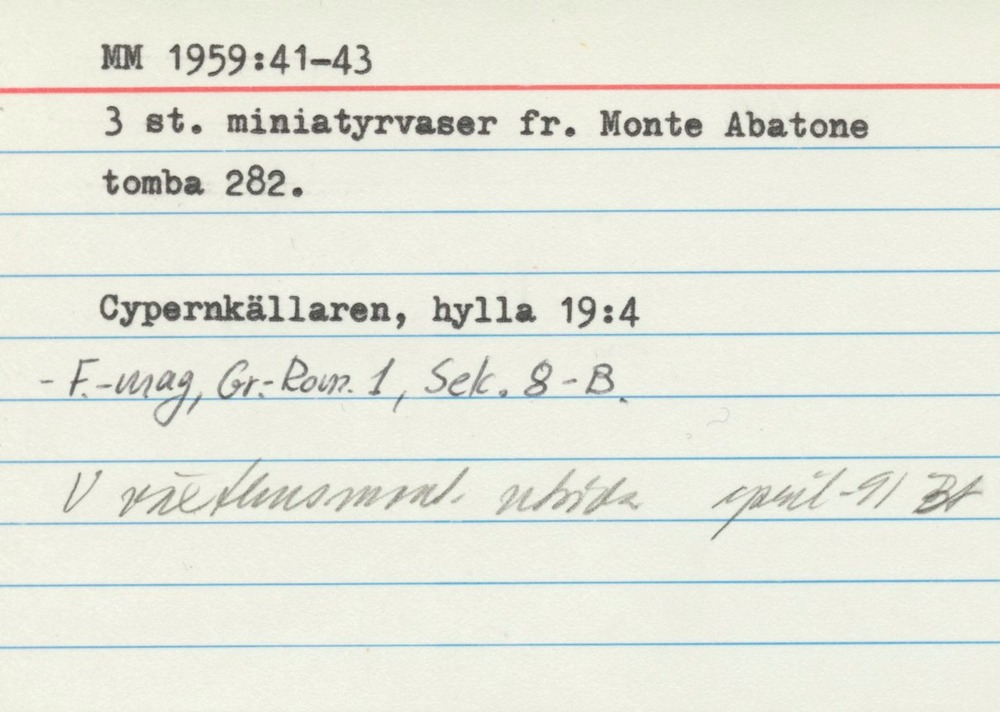 MM 1959:41-43
3 st. miniatyrvaser fr. Monte Abatone
tomba 282.
Cypernkällaren, hylla 19:4
- F.-mag, Gr.-Rom. 1, Sek. 8 - B.
V april -91